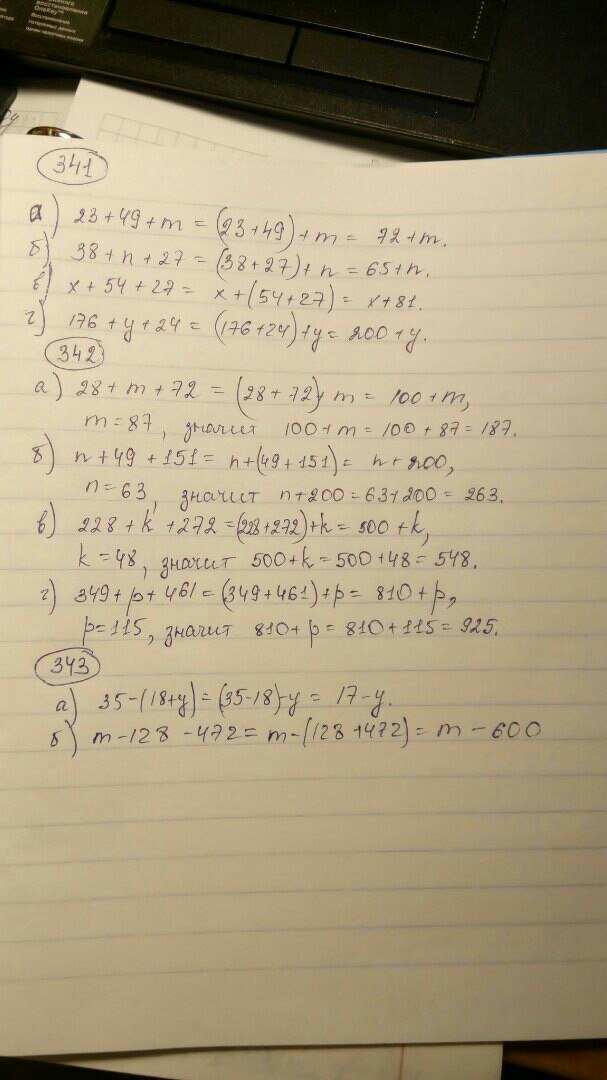 восстановления
OneKey™
Восстановление
потерянных данных
одним нажатием кнопки
341
а) 23+49+m = (23+49)+m = 72+m.
б) 38+n+27 = (38+27)+n = 65+n.
в) x+54+27 = x+(54+27) = x+81.
г) 176+y+24 = (176+24)+y = 200+y.
342
а) 28+m+72 = (28+72)+m = 100+m,
m=87, значит 100+m=100+87=187.
б) n+49+151= n+(49+151)= n+200,
n=63, значит n+200=63+200=263.
в) 228+k+272=(228+272)+k=500+k,
k=48, значит 500+k=500+48=548.
г) 349+p+461=(349+461)+p= 810+p,
p=115, значит 810+p=810+115=925.
343
а) 35-(18+y)=(35-18)-y= 17-y.
б) m-128-472= m-(128+472)= m-600